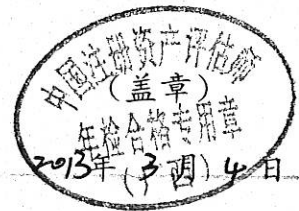 中国注册资产评估师
（盖章）
年检合格专用章
2013年（3月）4日